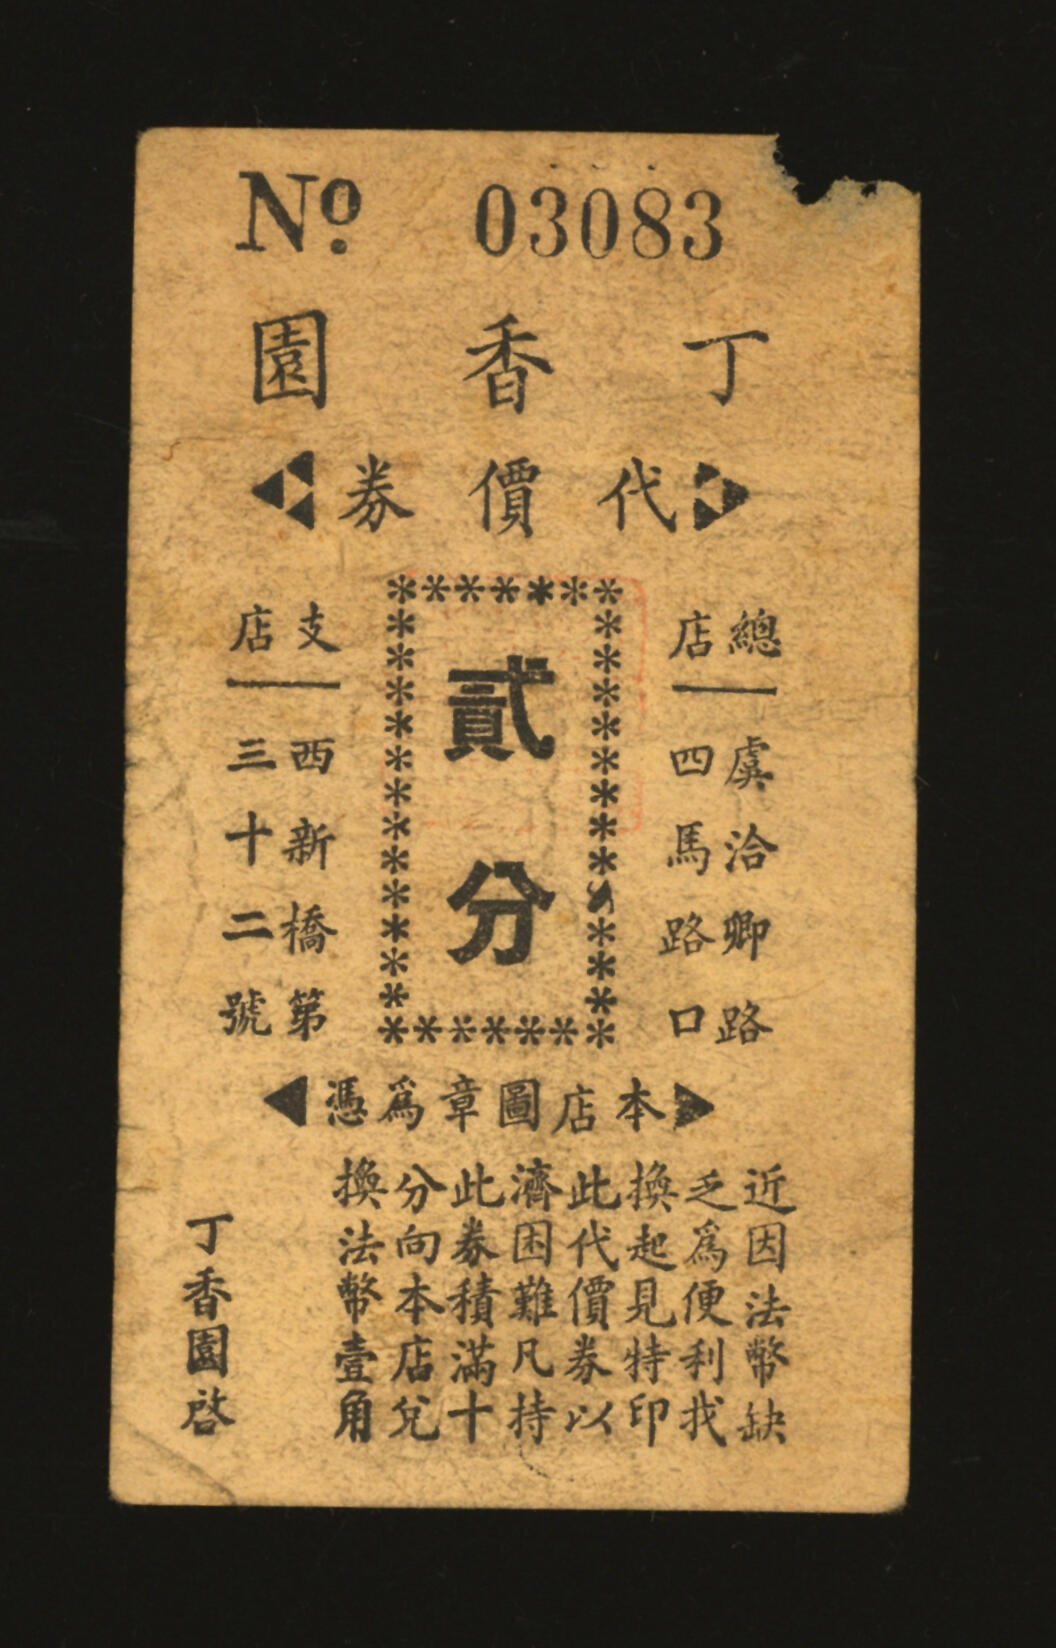 No 03083
丁香園
代價券
總店
虞洽卿路
四馬路口
貳分
支店
西新橋第
三十二號
本店圖章為憑
近因法幣缺
乏為便利找
換起見特印
此代價券以
濟困難凡持
此券積滿十
分向本店兌
換法幣壹角
丁香園啓